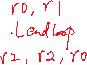 r0, r1
.Lendloop
r2, r2, r0